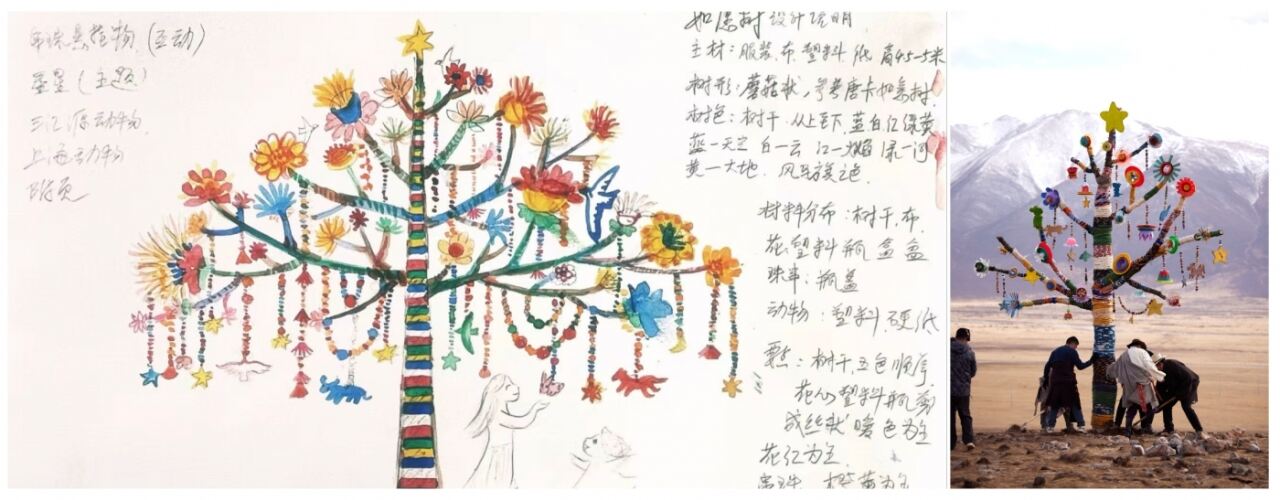 悬挂物 (互动)
星星 (主题)
三江源动物
上海动物
如意树设计说明
主材：服装、布、塑料、纸 高4.5-5米
树形：蘑菇状，参考唐卡如意树.
树色：树干：从上至下，蓝白红绿黄
蓝—天空 白—云 红—火焰 绿—河
黄—大地. 风马旗之色.
材料分布：树干、布.
花、塑料瓶 盒 盆
珠串：瓶盖
动物：塑料 硬纸
树干，五色顺序.
花以塑料瓶剪
成丝状 暖色为主
花红为主.
橙黄为主